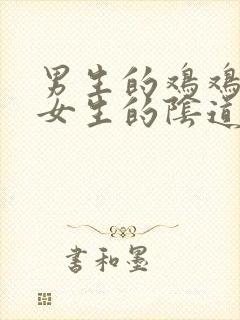 男生的鸡鸡
女生的陰道
書和墨